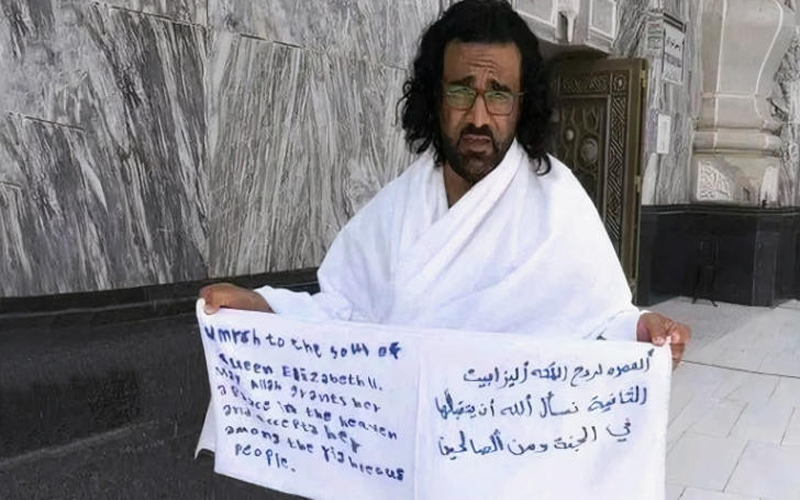 Umrah to the soul of
Queen Elizabeth II.
May Allah grants her
a place in the heaven
and accepts her
among the righteous
people.
ألعمره لروح الملكه أليزابيث
الثانية نسأل الله أن يتقبلها
في الجنة ومن ألصالحين